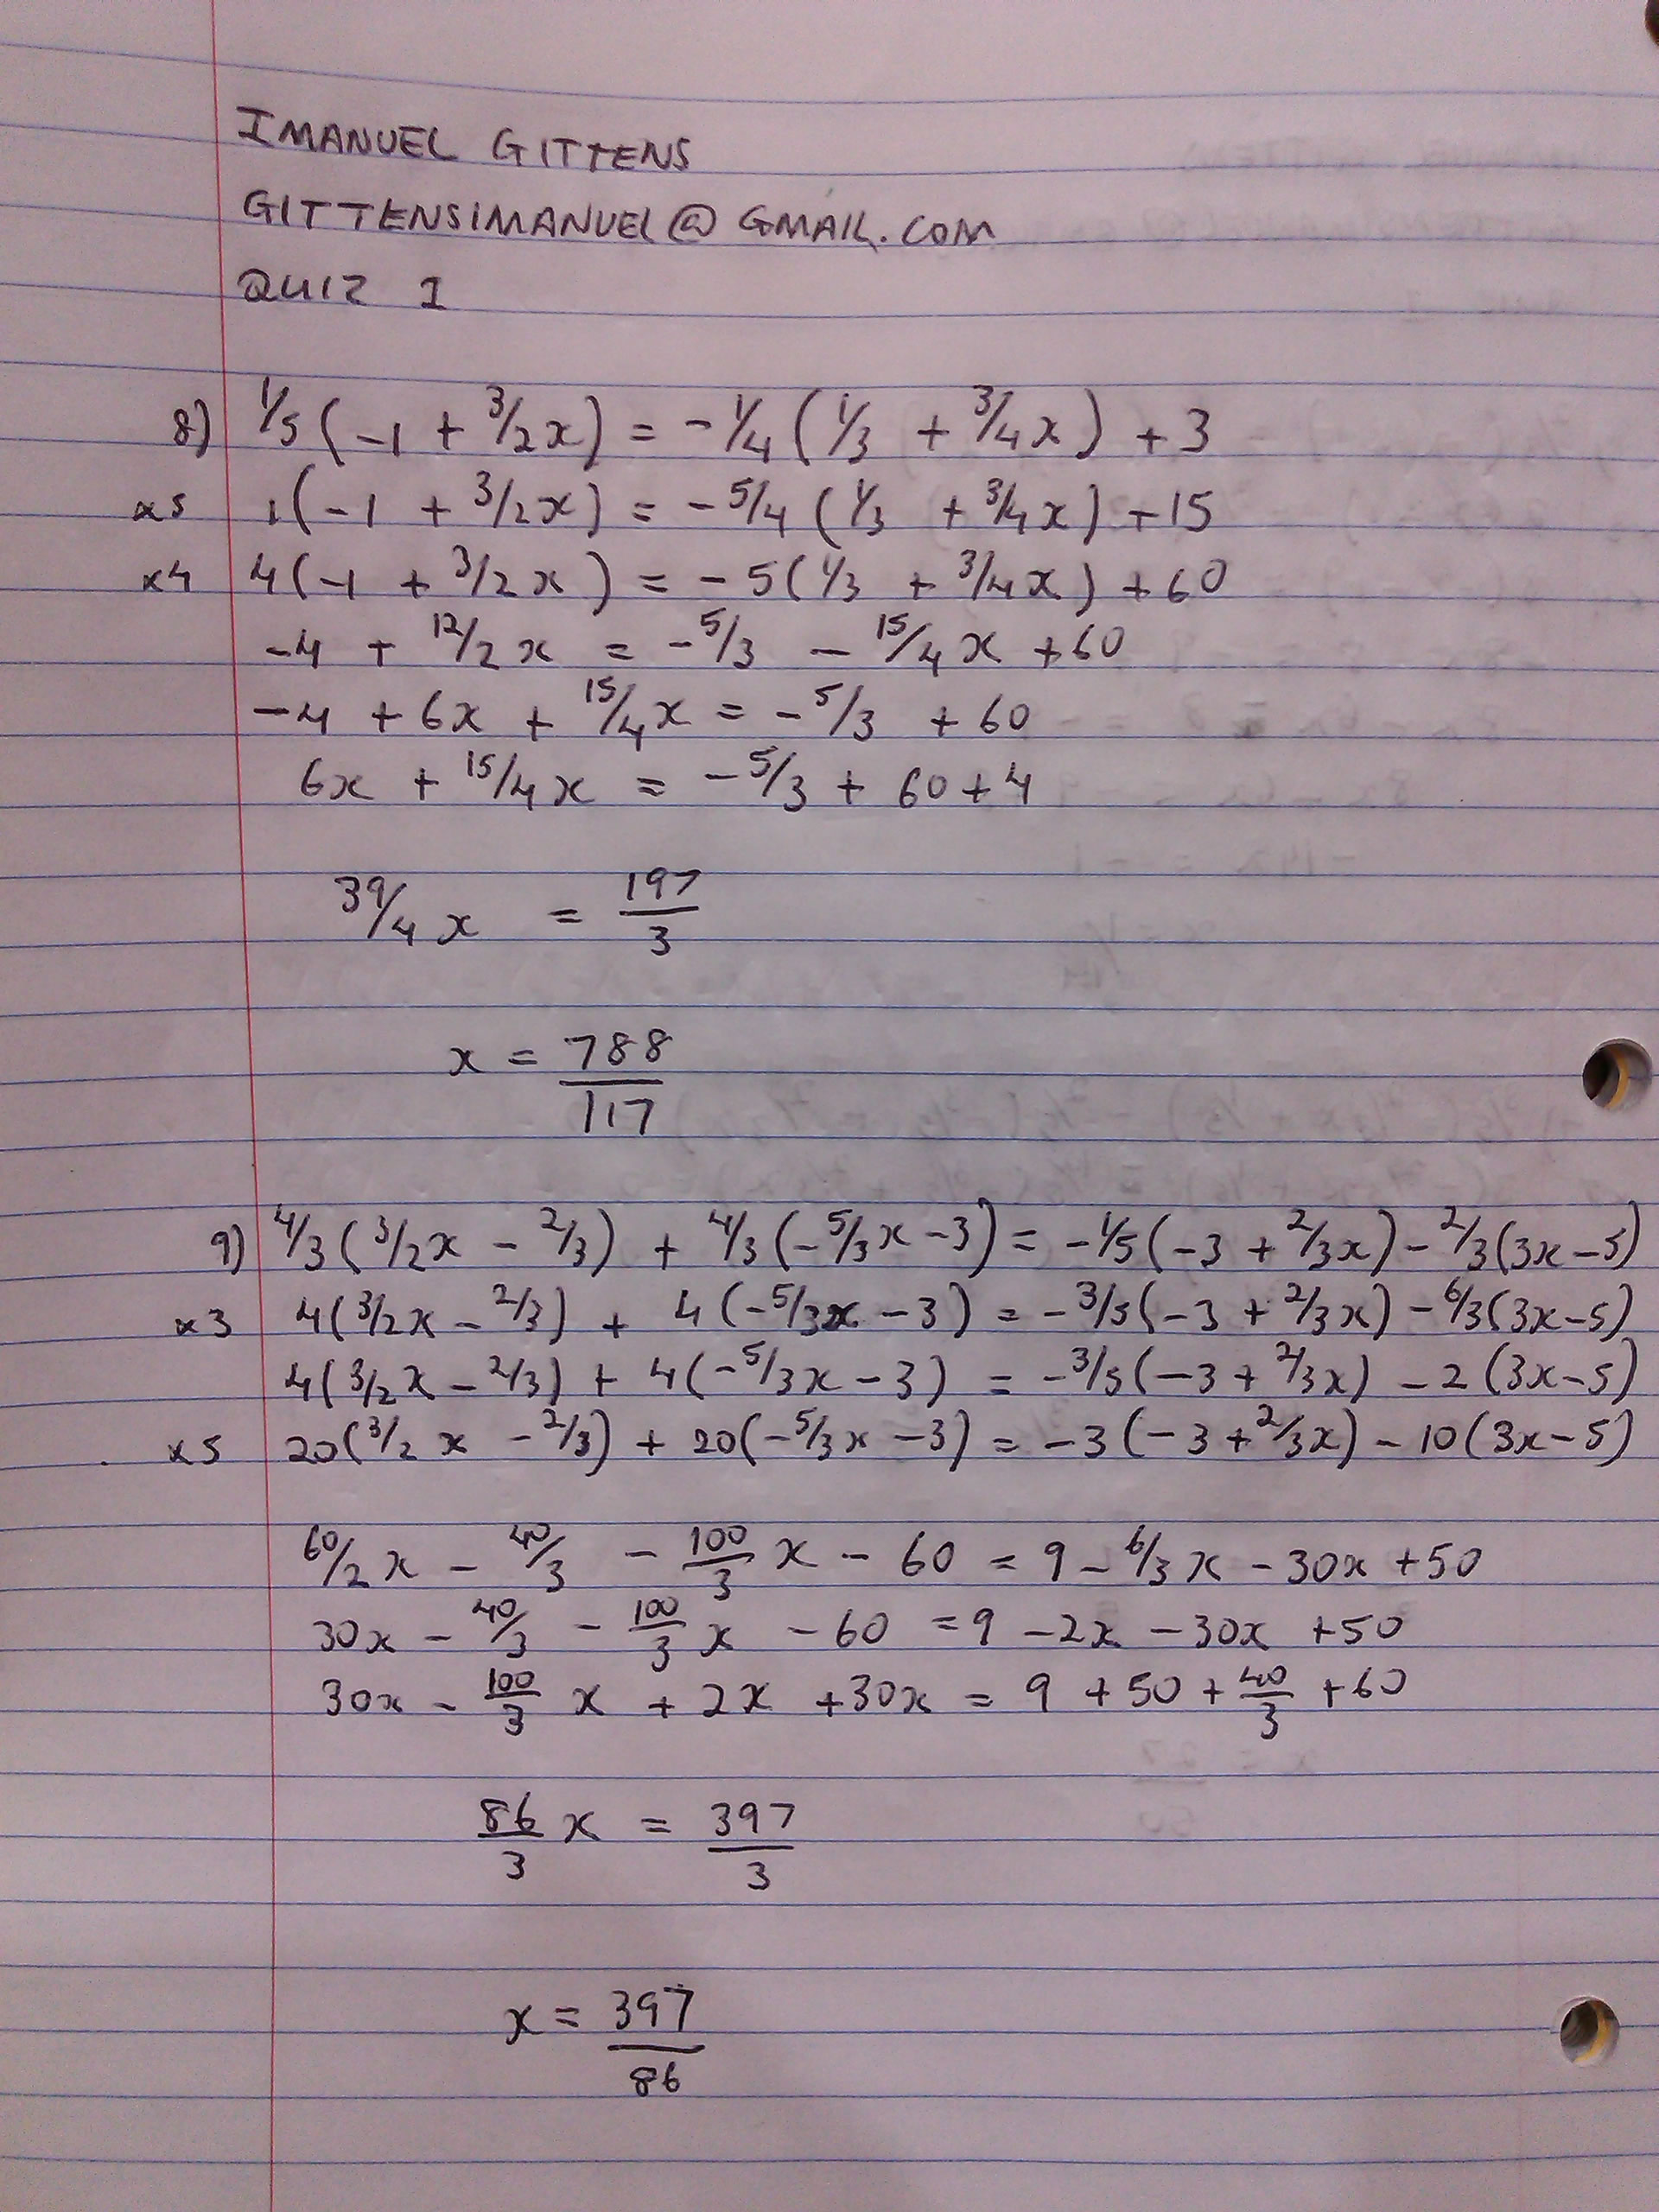 IMANUEL GITTENS
GITTENSIMANUEL@GMAIL.COM
QUIZ 1
8) 1/5(-1 + 3/2x) = -1/4(1/3 + 3/4x) + 3
x5 1(-1 + 3/2x) = -5/4(1/3 + 3/4x) + 15
x4 4(-1 + 3/2x) = -5(1/3 + 3/4x) + 60
-4 + 12/2x = -5/3 - 15/4x + 60
-4 + 6x + 15/4x = -5/3 + 60
6x + 15/4x = -5/3 + 60 + 4
39/4x = 197/3
x = 788/117
9) 4/3(3/2x - 2/3) + 4/3(-5/3x - 3) = -1/5(-3 + 2/3x) - 2/3(3x - 5)
x3 4(3/2x - 2/3) + 4(-5/3x - 3) = -3/5(-3 + 2/3x) - 6/3(3x - 5)
4(3/2x - 2/3) + 4(-5/3x - 3) = -3/5(-3 + 2/3x) - 2(3x - 5)
x5 20(3/2x - 2/3) + 20(-5/3x - 3) = -3(-3 + 2/3x) - 10(3x - 5)
60/2x - 40/3 - 100/3x - 60 = 9 - 6/3x - 30x + 50
30x - 40/3 - 100/3x - 60 = 9 - 2x - 30x + 50
30x - 100/3x + 2x + 30x = 9 + 50 + 40/3 + 60
86/3x = 397/3
x = 397/86